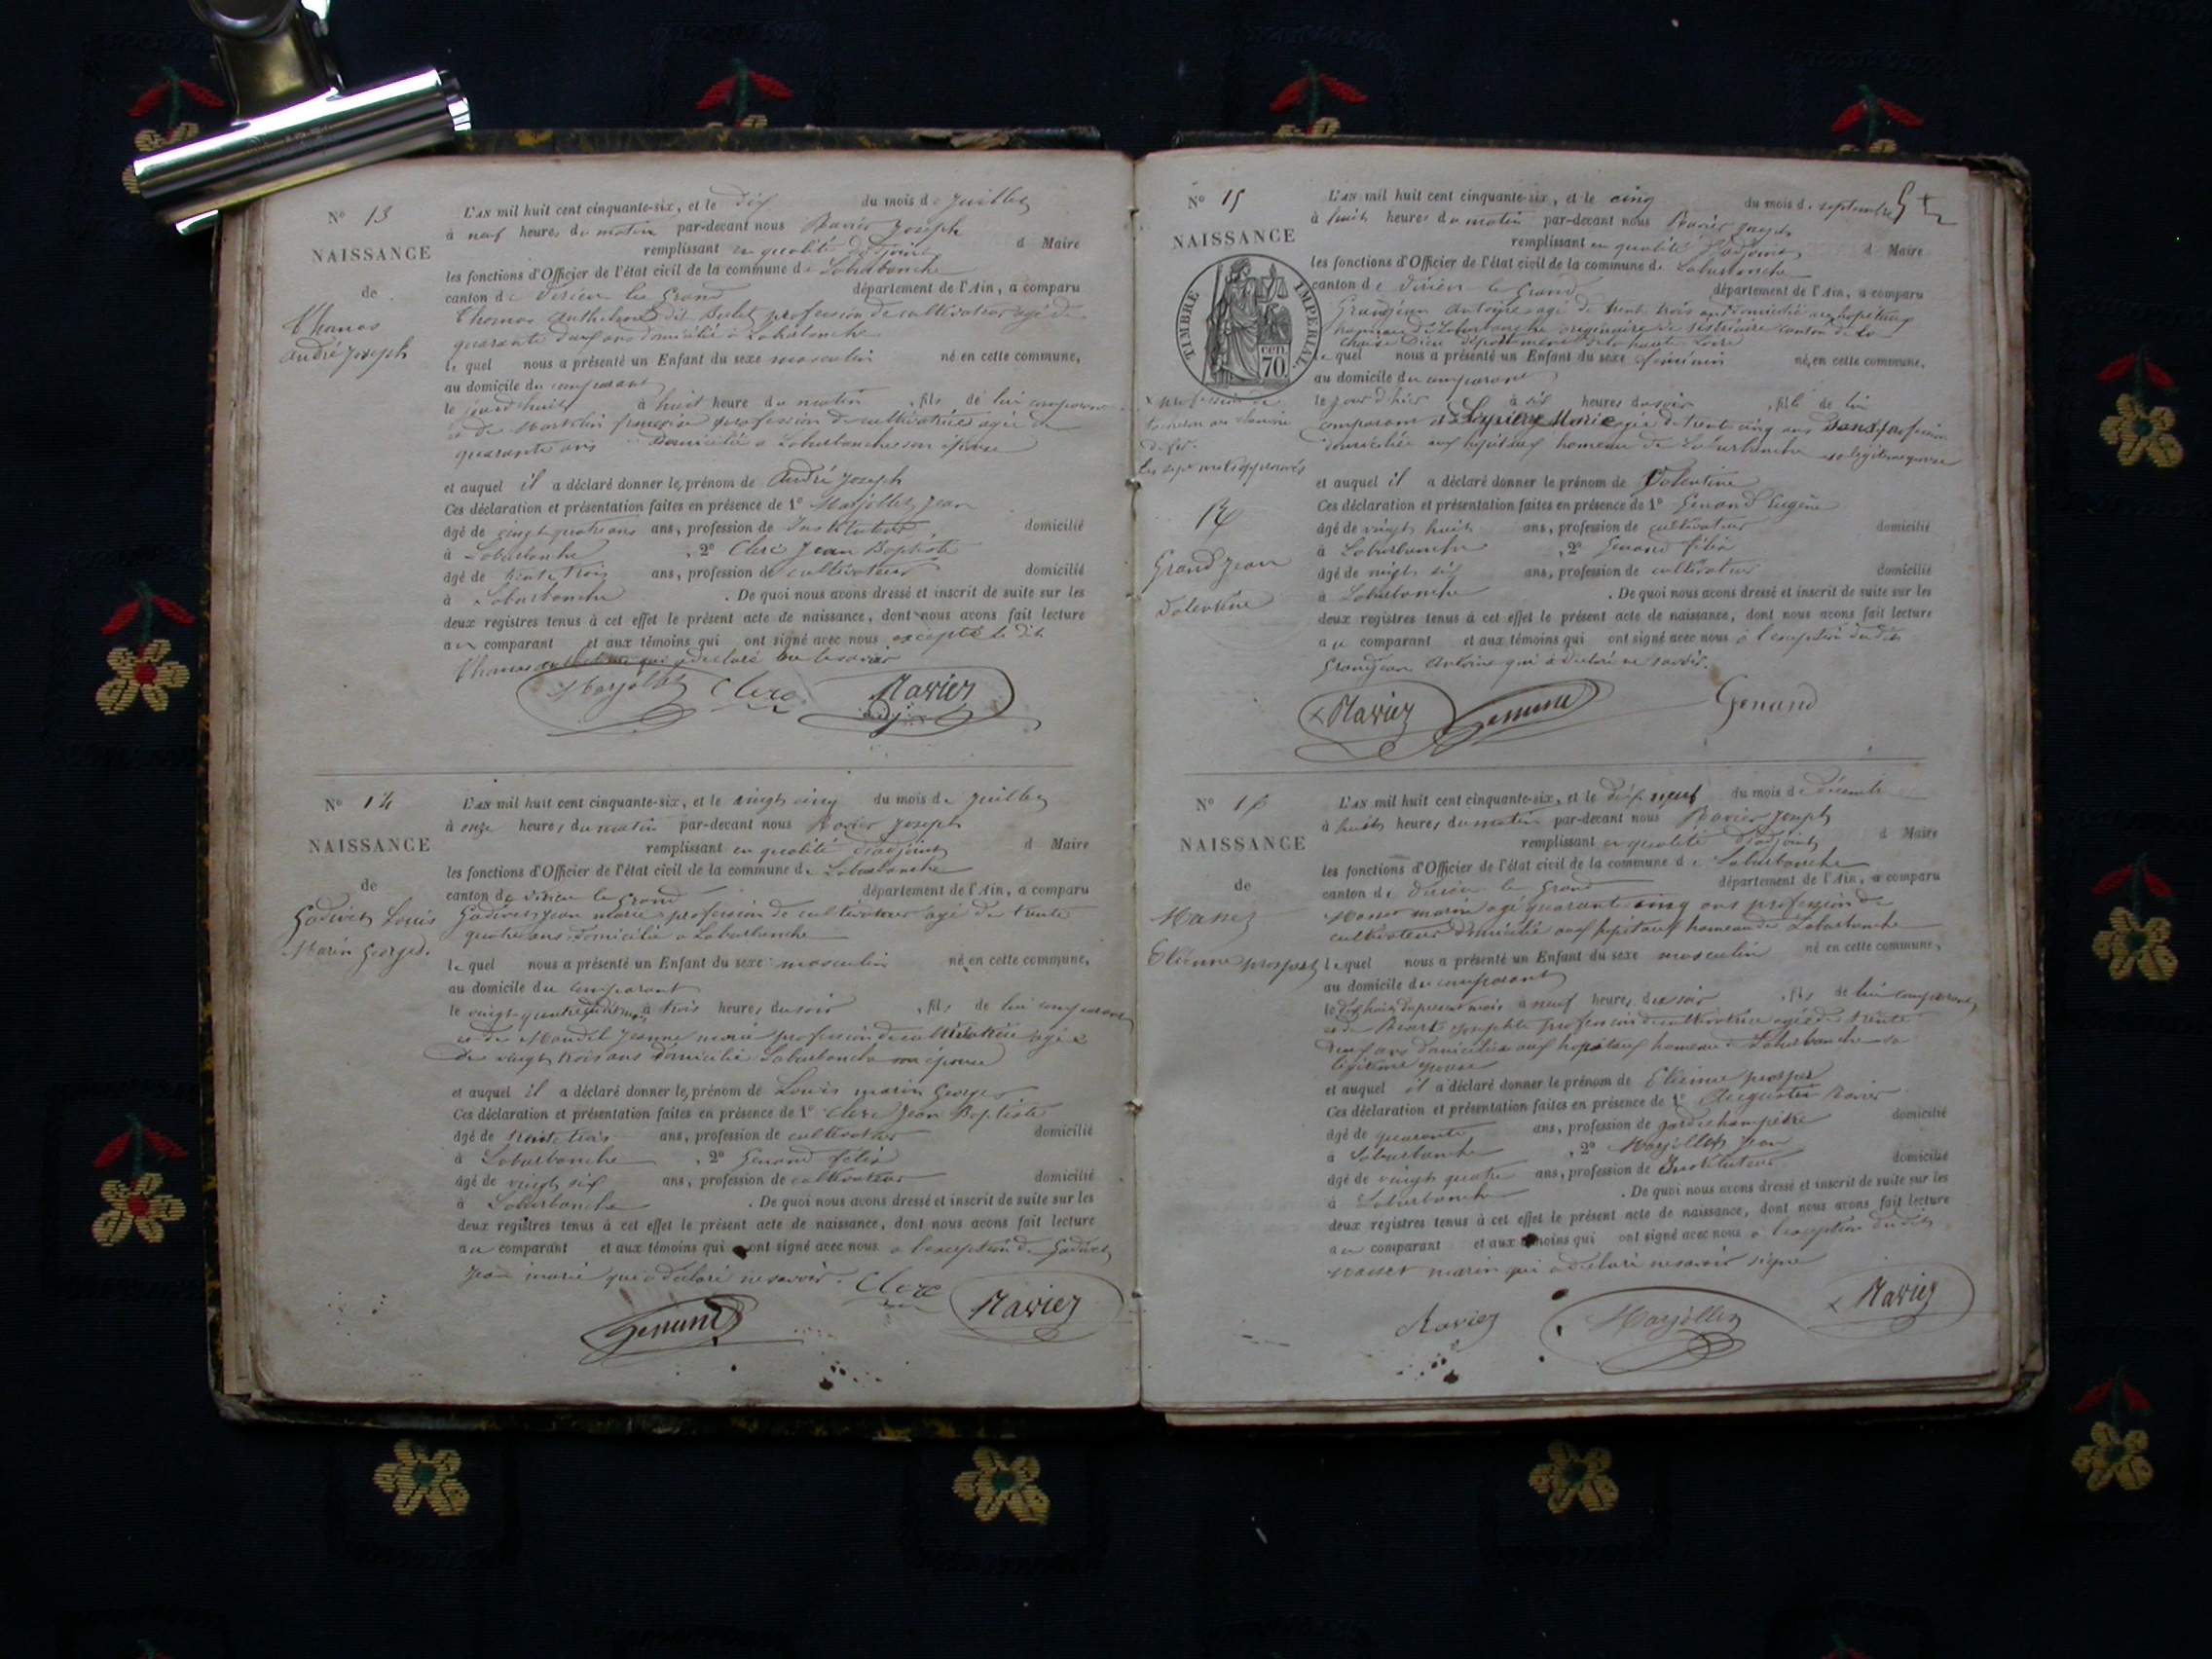 N° 13
NAISSANCE
de
Thomas
André Joseph
L'AN mil huit cent cinquante-six, et le dix du mois de Juillet
à neuf heures du matin par-devant nous Ravier Joseph
remplissant en qualité d'adjoint d Maire
les fonctions d'Officier de l'état civil de la commune de Labarbanche
canton de Virieu le Grand département de l'Ain, a comparu
Thomas Anthelme dit profession de cultivateur agé de
quarante deux ans domicilié à Labarbanche
le quel nous a présenté un Enfant du sexe masculin né en cette commune,
au domicile du comparant
le jourd'huit à huit heure du matin , fils de lui comparant
et de françoise profession de cultivatrice agée de
quarante ans domicilié a Labarbanche son épouse
et auquel il a déclaré donner le prénom de André Joseph
Ces déclaration et présentation faites en présence de 1° Marjollet Jean
âgé de vingt quatre ans ans, profession de Instituteur domicilié
à Labarbanche , 2° Clerc Jean Baptiste
âgé de trente trois ans, profession de cultivateur domicilié
à Labarbanche . De quoi nous avons dressé et inscrit de suite sur les
deux registres tenus à cet effet le présent acte de naissance, dont nous avons fait lecture
au comparant et aux témoins qui ont signé avec nous excepté le dit
Thomas Anthelme qui a déclaré ne le savoir
Marjollet Clerc Ravier
adjoint
N° 14
NAISSANCE
de
Gadivet Louis
Marin Georges.
L'AN mil huit cent cinquante-six, et le vingt cinq du mois de Juillet
à onze heures du matin par-devant nous Ravier Joseph
remplissant en qualité d'adjoint d Maire
les fonctions d'Officier de l'état civil de la commune de Labarbanche
canton de Virieu le Grand département de l'Ain, a comparu
Gadivet Jean marie profession de cultivateur agé de trente
quatre ans domicilié a Labarbanche
le quel nous a présenté un Enfant du sexe masculin né en cette commune,
au domicile du comparant
le vingt-quatre du dit mois à trois heures du soir , fils de lui comparant
et de Mandel Jeanne marie profession de cultivatrice agée
de vingt trois ans domicilié Labarbanche sa épouse
et auquel il a déclaré donner le prénom de Louis marin Georges
Ces déclaration et présentation faites en présence de 1° Clerc Jean Baptiste
âgé de trente trois ans, profession de cultivateur domicilié
à Labarbanche , 2° Genand félix
âgé de vingt six ans, profession de cultivateur domicilié
à Labarbanche . De quoi nous avons dressé et inscrit de suite sur les
deux registres tenus à cet effet le présent acte de naissance, dont nous avons fait lecture
au comparant et aux témoins qui ont signé avec nous a l'exception de Gadivet
Jean marie qui a déclaré ne savoir.
Clerc Ravier
Genand
N° 15
NAISSANCE
TIMBRE IMPERIAL.
70 cen.
profession de
les sept mots approuvés
Grand Jean
Valentine
L'AN mil huit cent cinquante-six, et le cinq du mois de septembre
à huit heures du matin par-devant nous Ravier Joseph
remplissant en qualité d'adjoint d Maire
les fonctions d'Officier de l'état civil de la commune de Labarbanche
canton de Virieu le Grand département de l'Ain, a comparu
Grandjean Antoine agé de trente trois ans domicilié aux hopitaux
hameau de Labarbanche originaire de canton de la
Chaise Dieu département de la haute Loire
le quel nous a présenté un Enfant du sexe féminin né, en cette commune,
au domicile du comparant
le jour d'hier à six heures du soir , fille de lui
comparant et Marie agée de trente cinq ans sans profession
domiciliée aux hopitaux hameau de Labarbanche sa légitime épouse
et auquel il a déclaré donner le prénom de Valentine
Ces déclaration et présentation faites en présence de 1° Genand Eugène
âgé de vingt huit ans, profession de cultivateur domicilié
à Labarbanche , 2° Genand félix
âgé de vingt six ans, profession de cultivateur domicilié
à Labarbanche . De quoi nous avons dressé et inscrit de suite sur les
deux registres tenus à cet effet le présent acte de naissance, dont nous avons fait lecture
au comparant et aux témoins qui ont signé avec nous a l'exception du dit
Grandjean Antoine qui a déclaré ne savoir.
Ravier Genand Genand
N° 16
NAISSANCE
de
Masset
Etienne prosper
L'AN mil huit cent cinquante-six, et le dix neuf du mois de décembre
à huit heures du matin par-devant nous Ravier Joseph
remplissant en qualité d'adjoint d Maire
les fonctions d'Officier de l'état civil de la commune de Labarbanche
canton de Virieu le Grand département de l'Ain, a comparu
Masset marin agé quarante cinq ans profession de
cultivateur domicilié aux hopitaux hameau de Labarbanche
le quel nous a présenté un Enfant du sexe masculin né en cette commune,
au domicile du comparant
le dix huit du present mois à neuf heures du soir , fils de lui comparant
et de Josephte profession de cultivatrice agée de trente
deux ans domiciliée aux hopitaux hameau de Labarbanche sa
légitime épouse
et auquel il a déclaré donner le prénom de Etienne prosper
Ces déclaration et présentation faites en présence de 1° Augustin Ravier
âgé de quarante ans, profession de garde champêtre domicilié
à Labarbanche , 2° Marjollet Jean
âgé de vingt quatre ans, profession de Instituteur domicilié
à Labarbanche . De quoi nous avons dressé et inscrit de suite sur les
deux registres tenus à cet effet le présent acte de naissance, dont nous avons fait lecture
au comparant et aux témoins qui ont signé avec nous a l'exception du dit
Masset marin qui a déclaré ne savoir signé
Ravier Marjollet Ravier